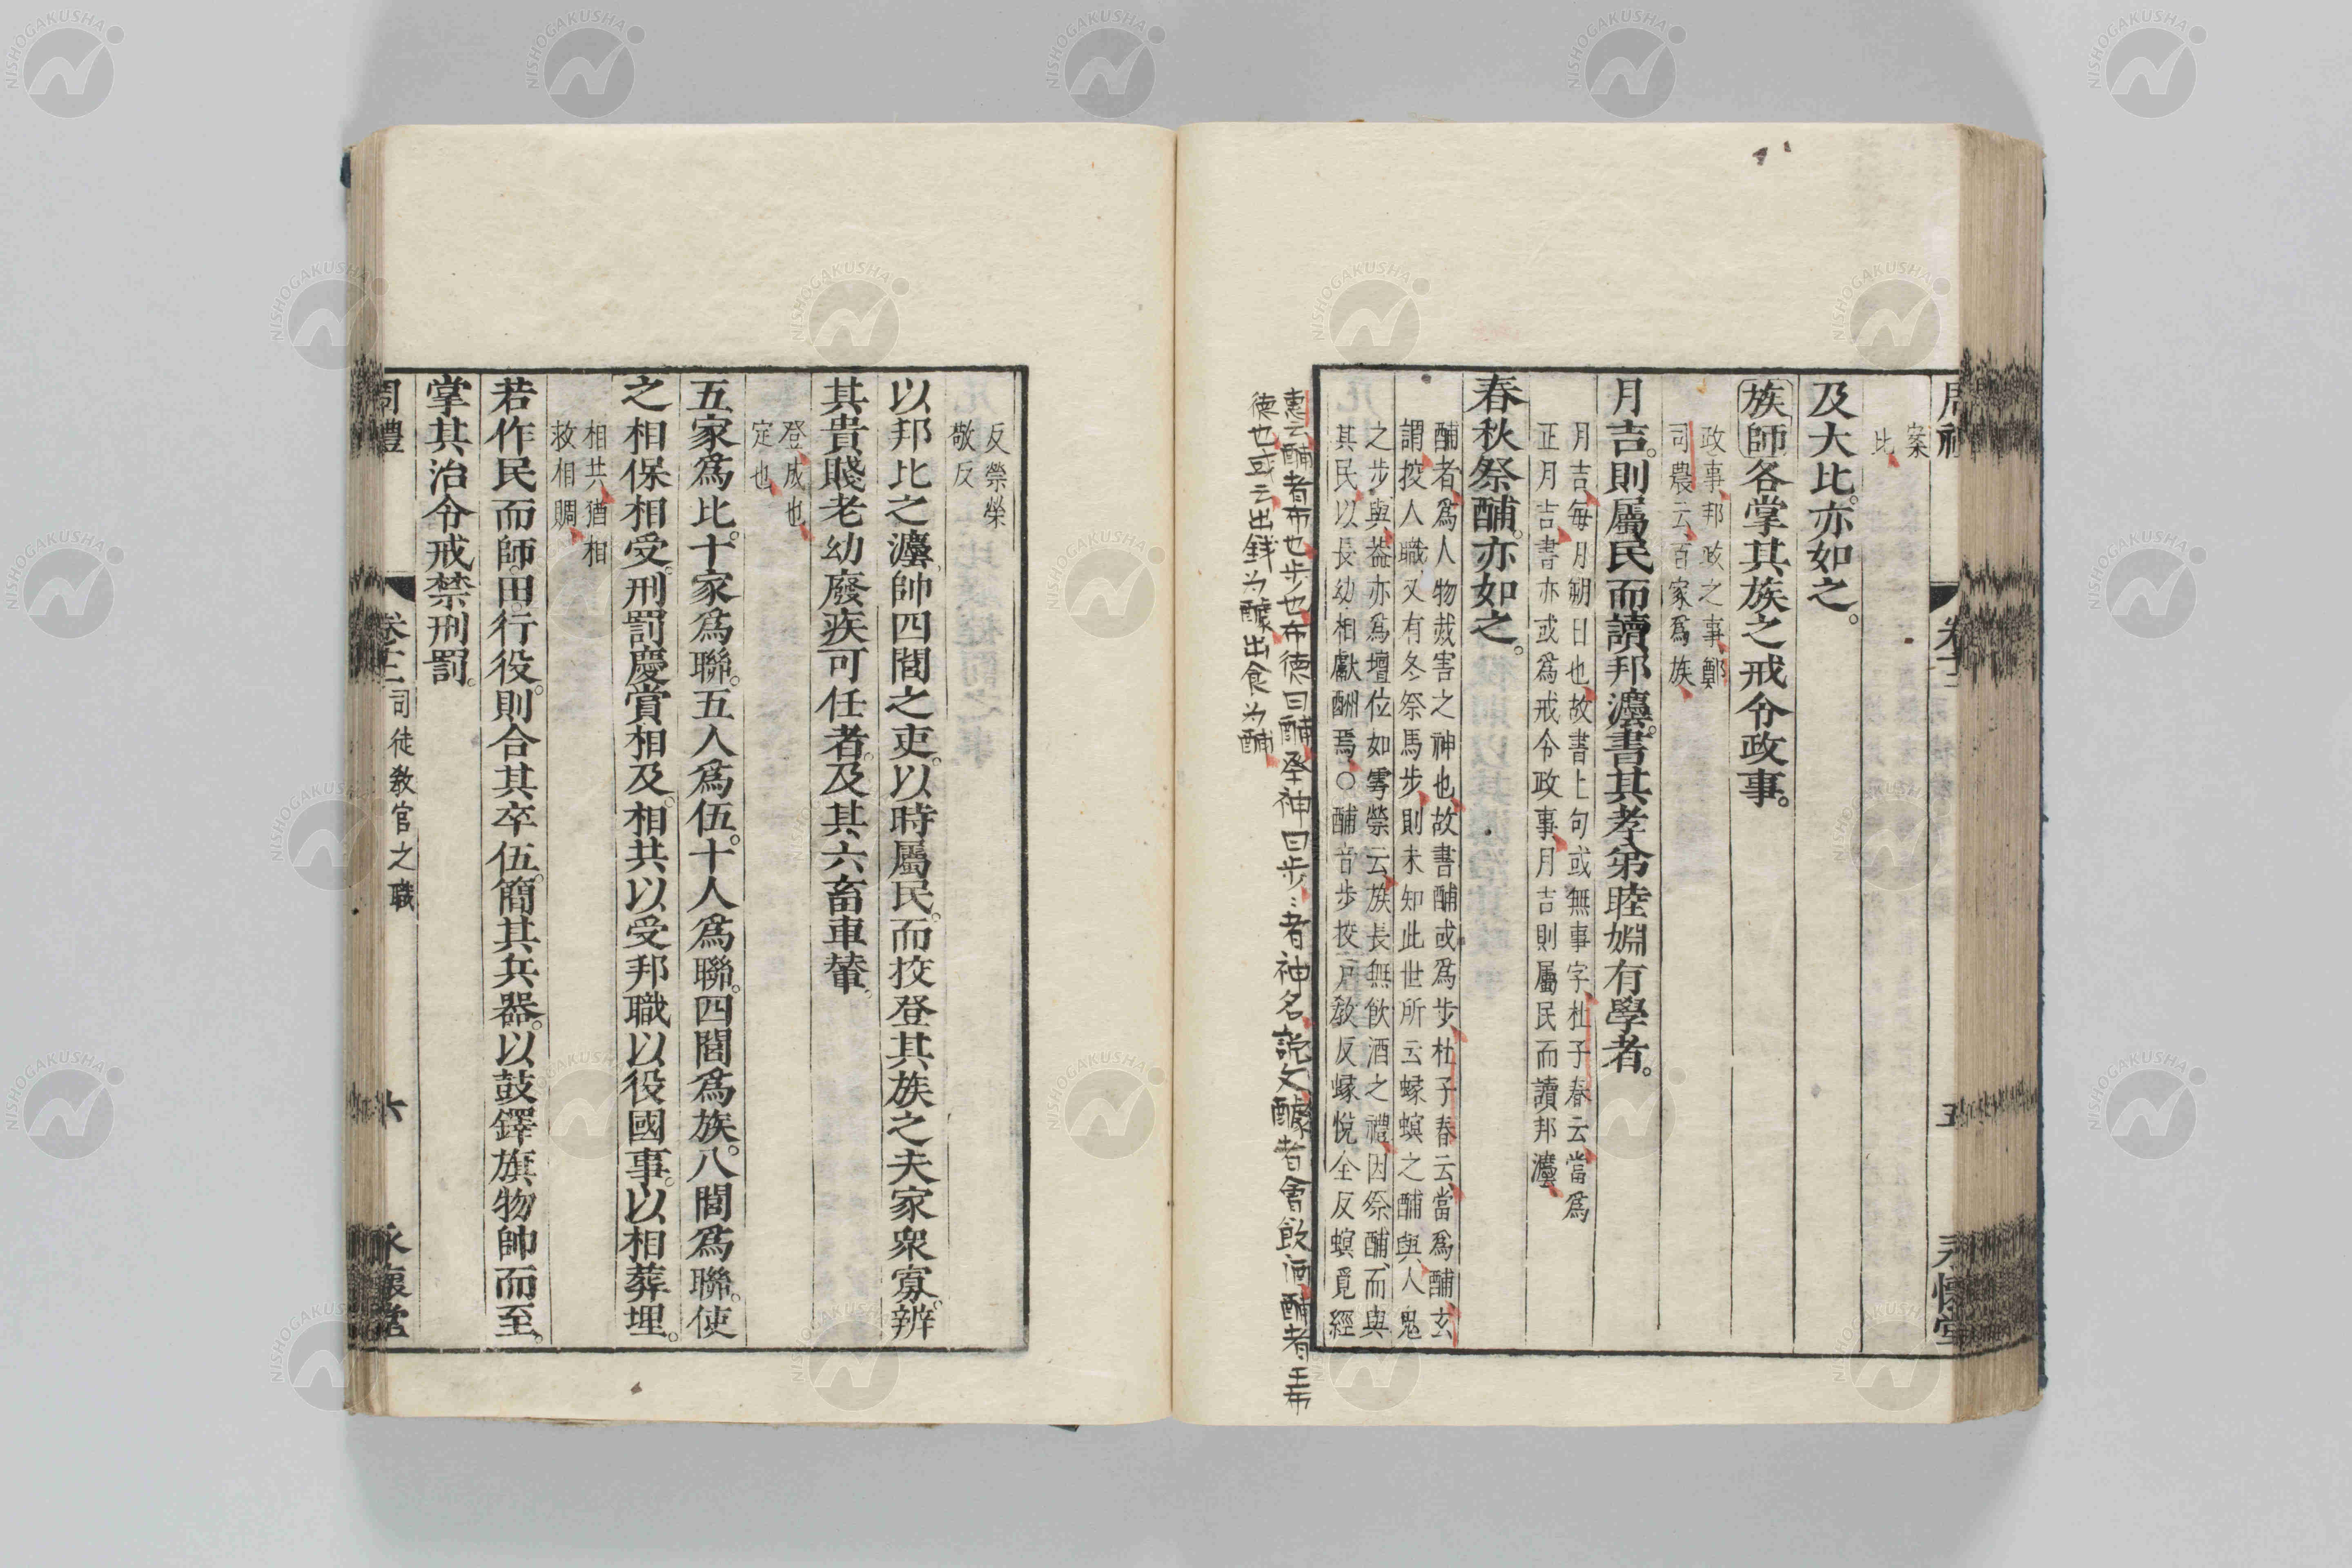 案
比
及大比。亦如之。
族師各掌其族之戒令政事。
政事邦政之事鄭
司農云百家爲族
月吉。則屬民而讀邦灋。書其孝弟睦婣有學者。
月吉每月朔日也故書上句或無事字杜子春云當爲
正月吉書亦或爲戒令政事月吉則屬民而讀邦灋
春秋祭酺。亦如之。
酺者爲人物烖害之神也故書酺或爲步杜子春云當爲酺玄
謂挍人職又有冬祭馬步則未知此世所云蝝螟之酺與人鬼
之步與葢亦爲壇位如雩禜云族長無飲酒之禮因祭酺而與
其民以長幼相獻酬焉○酺音步挍戶敎反蝝悅全反螟覓經
惠云酺者布也步也布德曰酺祭神曰步〻者神名説文醵者會飲酒酺者王布
德也或云出錢为醵出食为酺
反禜榮
敬反
以邦比之灋。帥四閭之吏。以時屬民。而挍登其族之夫家衆寡。辨
其貴賤老幼廢疾可任者。及其六畜車輦。
登成也
定也
五家爲比。十家爲聯。五人爲伍。十人爲聯。四閭爲族。八閭爲聯。使
之相保相受。刑罰慶賞相及。相共以受邦職以役國事。以相葬埋。
相共猶相
救相賙
若作民而師。田。行役。則合其卒伍。簡其兵器。以鼓鐸旗物帥而至。
掌其治令戒禁刑罰。
周禮 卷十二 司徒敎官之職 六 永懷堂